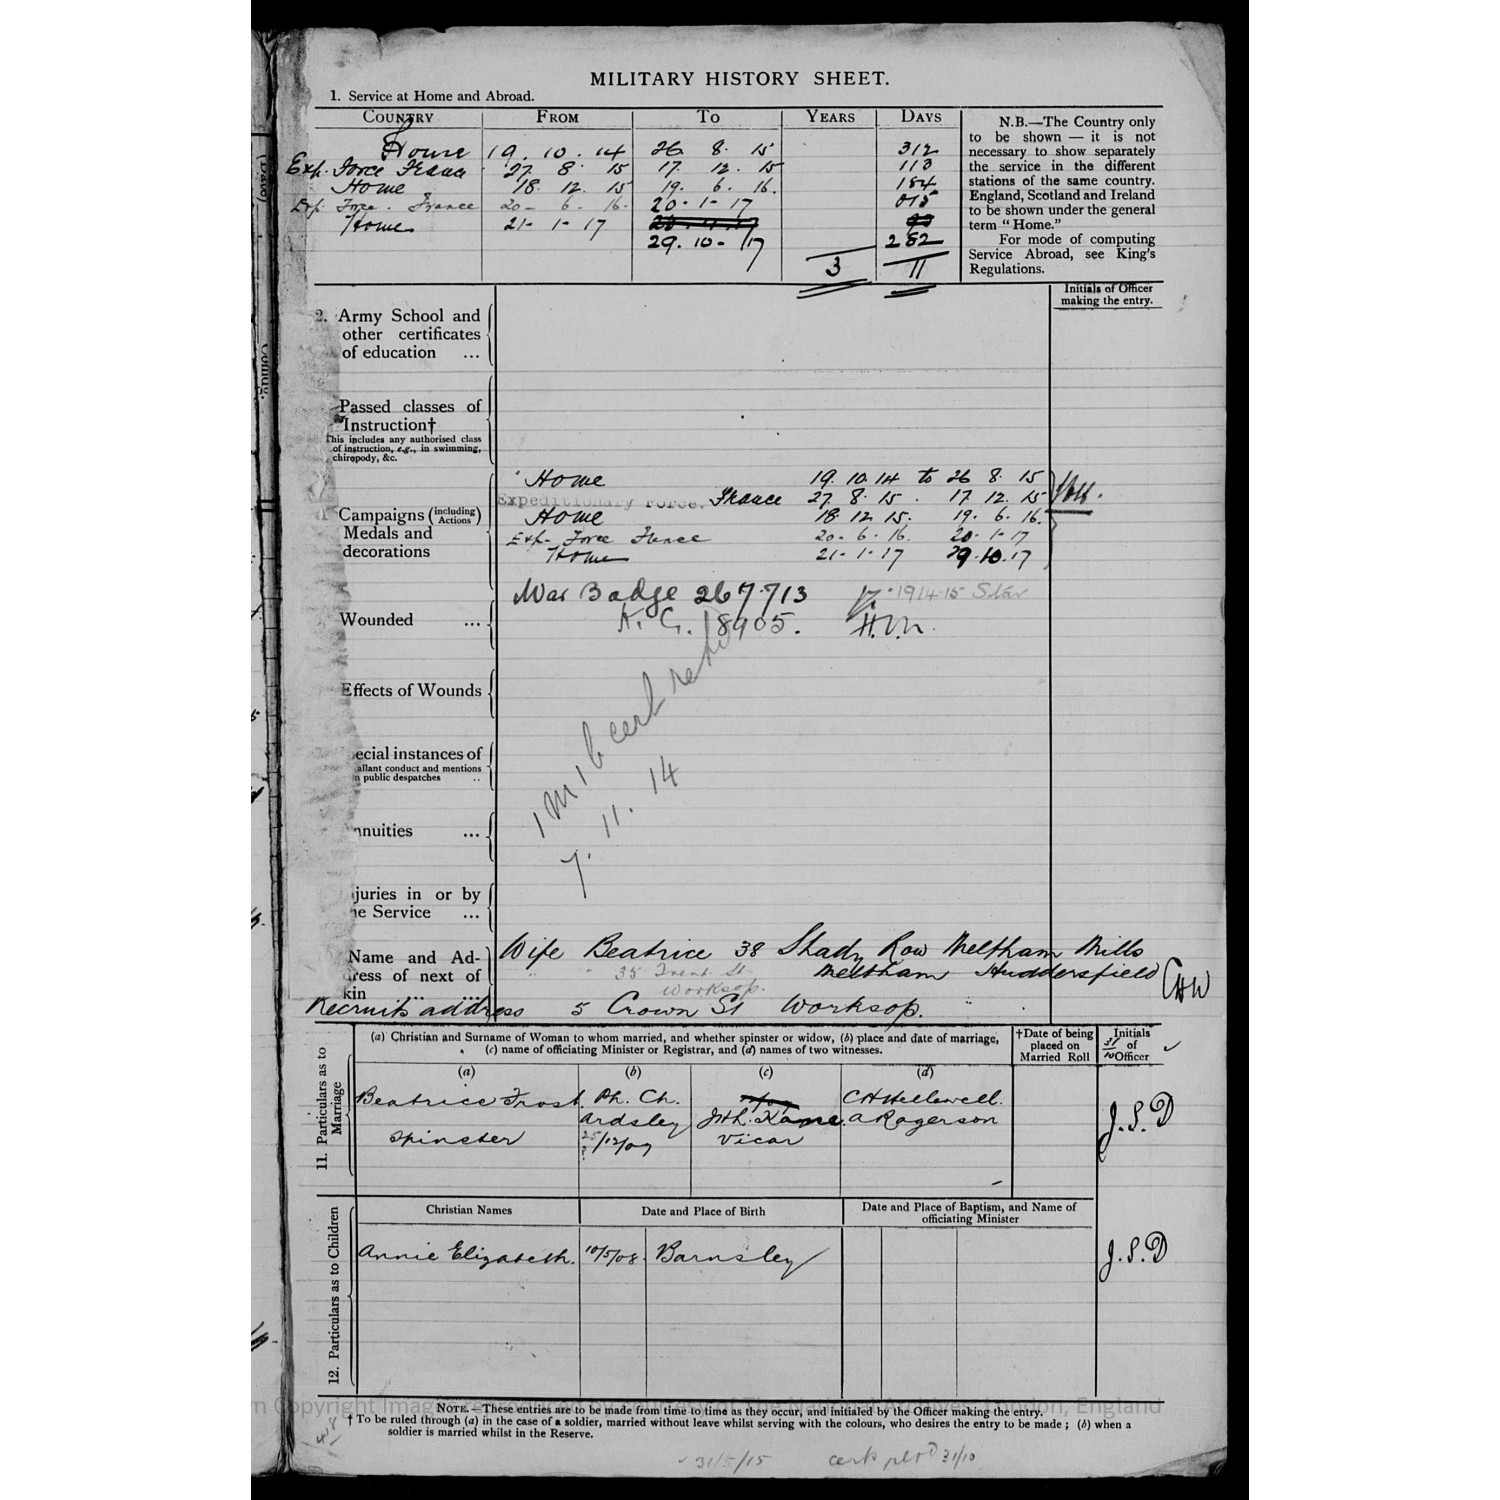 MILITARY HISTORY SHEET.
1. Service at Home and Abroad.
COUNTRY FROM TO YEARS DAYS
Home 19. 10. 14 26 8. 15 312
Exp. Force France 27. 8. 15 17. 12. 15 113
Home 18. 12. 15 19. 6. 16. 184
Exp. Force. France 20- 6. 16. 20-1-17 015
Home 21-1-17
29. 10-17 282
3 11
N.B.—The Country only
to be shown — it is not
necessary to show separately
the service in the different
stations of the same country.
England, Scotland and Ireland
to be shown under the general
term "Home."
For mode of computing
Service Abroad, see King's
Regulations.
Initials of Officer
making the entry.
2. Army School and
other certificates
of education ...
Passed classes of
Instruction†
This includes any authorised class
of instruction, e.g., in swimming,
chiropody, &c.
Campaigns (including
Actions)
Medals and
decorations
Home 19. 10. 14 to 26 8. 15
Expeditionary Force. France 27. 8. 15. 17. 12. 15
Home 18. 12 15. 19. 6. 16.
Exp- Force France 20- 6. 16. 20-1-17
Home 21-1-17 29.10.17
War Badge 267713 1914-15 Star
K. G. 18905. H.M.
Wounded ...
Effects of Wounds
ecial instances of
allant conduct and mentions
n public despatches ..
nnuities ...
juries in or by
he Service ...
7. 11. 14
Name and Ad-
dress of next of
kin ... ...
Wife Beatrice 38 Shady Row Meltham Mills
Meltham Huddersfield
35 Trent St
Worksop.
Recruits address 5 Crown St Worksop.
11. Particulars as to Marriage
(a) Christian and Surname of Woman to whom married, and whether spinster or widow, (b) place and date of marriage,
(c) name of officiating Minister or Registrar, and (d) names of two witnesses.
†Date of being
placed on
Married Roll
Initials
of
Officer
(a) (b) (c) (d)
Beatrice Frost. Ph. Ch. C H Hellewell.
Ardsley J.H. Kane. A Rogerson
Spinster 25/12/07 Vicar
J.S.D
12. Particulars as to Children
Christian Names Date and Place of Birth Date and Place of Baptism, and Name of
officiating Minister
Annie Elizabeth. 10/5/08. Barnsley J.S.D
NOTE.—These entries are to be made from time to time as they occur, and initialed by the Officer making the entry.
† To be ruled through (a) in the case of a soldier, married without leave whilst serving with the colours, who desires the entry to be made; (b) when a
soldier is married whilst in the Reserve.
31/5/15 31/10